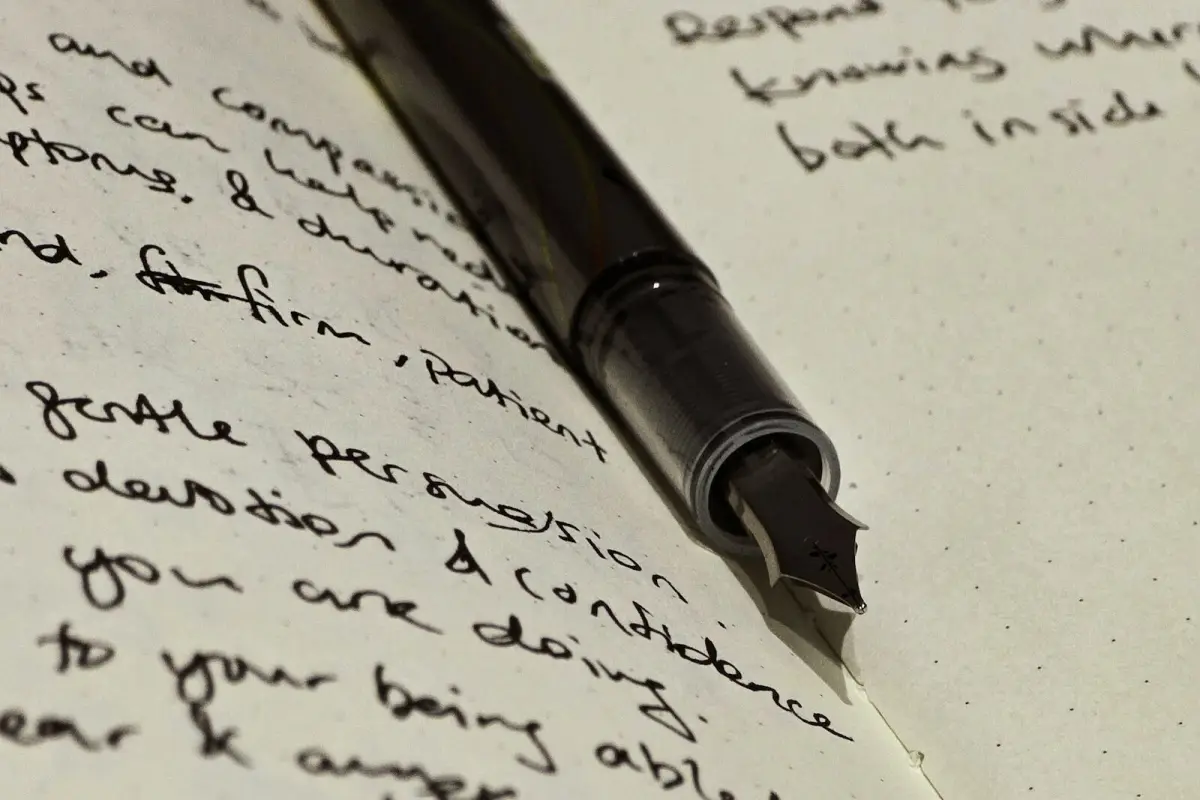 and compassio
ps can help red
ptoms. & duration
nd. firm, patient
gentle persuasion.
devotion & confidence
you are doing.
to your being able
ear &
Respond
knowing wher
both inside